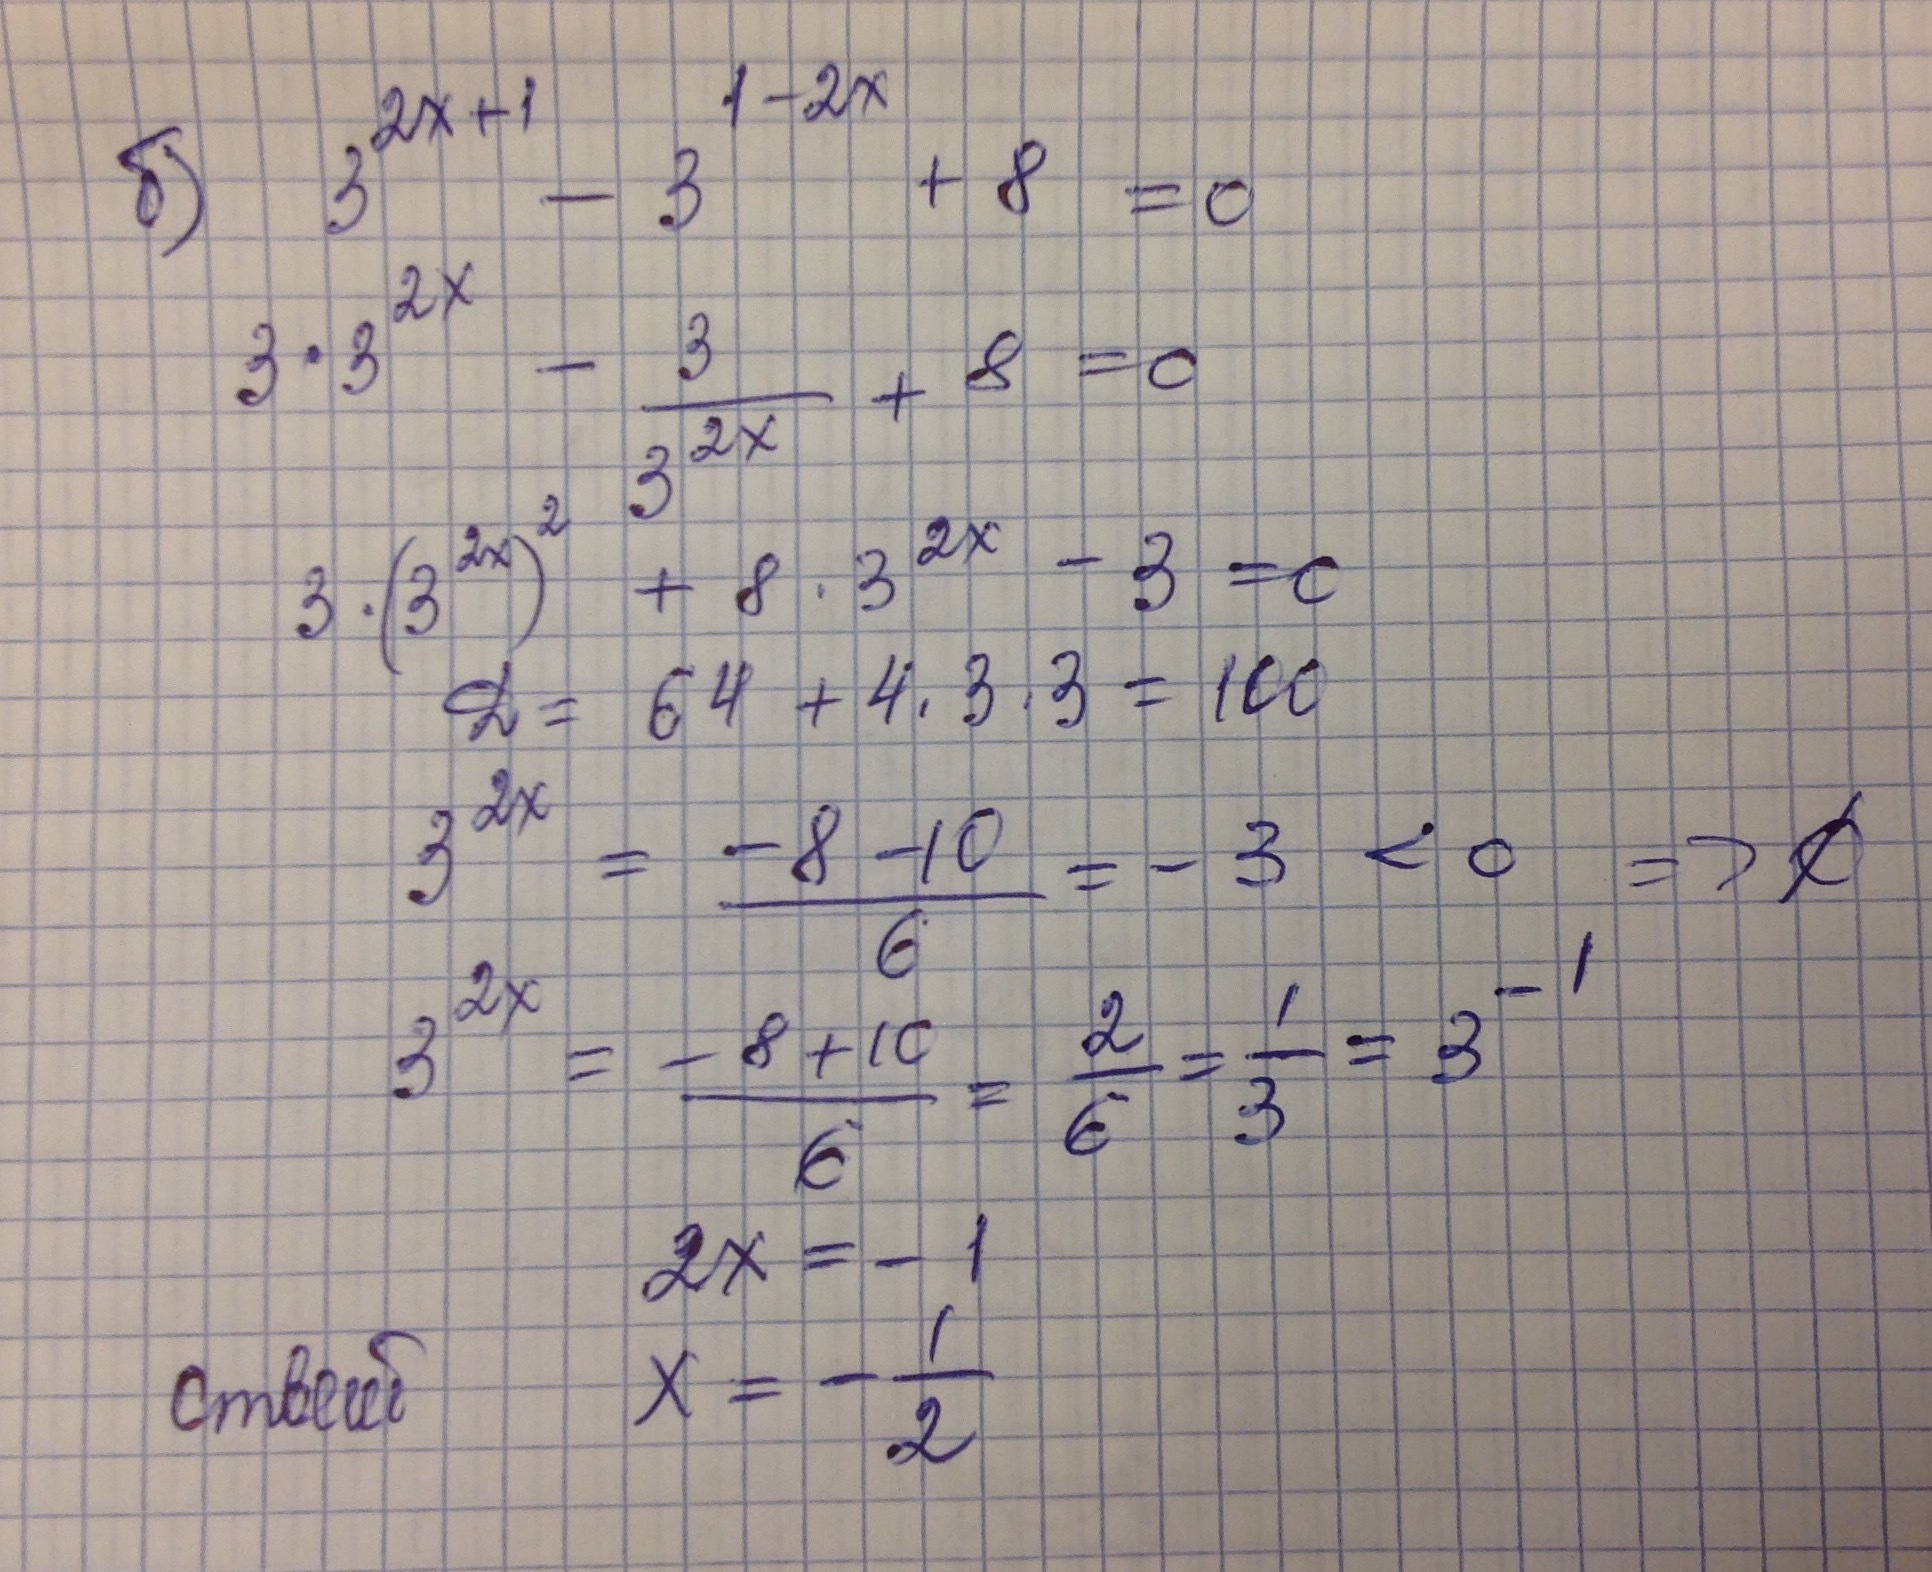 б) 3^{2x+1} - 3^{1-2x} + 8 = 0
3 · 3^{2x} - \frac{3}{3^{2x}} + 8 = 0
3 · (3^{2x})^2 + 8 · 3^{2x} - 3 = 0
D = 64 + 4 · 3 · 3 = 100
3^{2x} = \frac{-8-10}{6} = -3 < 0 => ∅
3^{2x} = \frac{-8+10}{6} = \frac{2}{6} = \frac{1}{3} = 3^{-1}
2x = -1
ответ x = -\frac{1}{2}